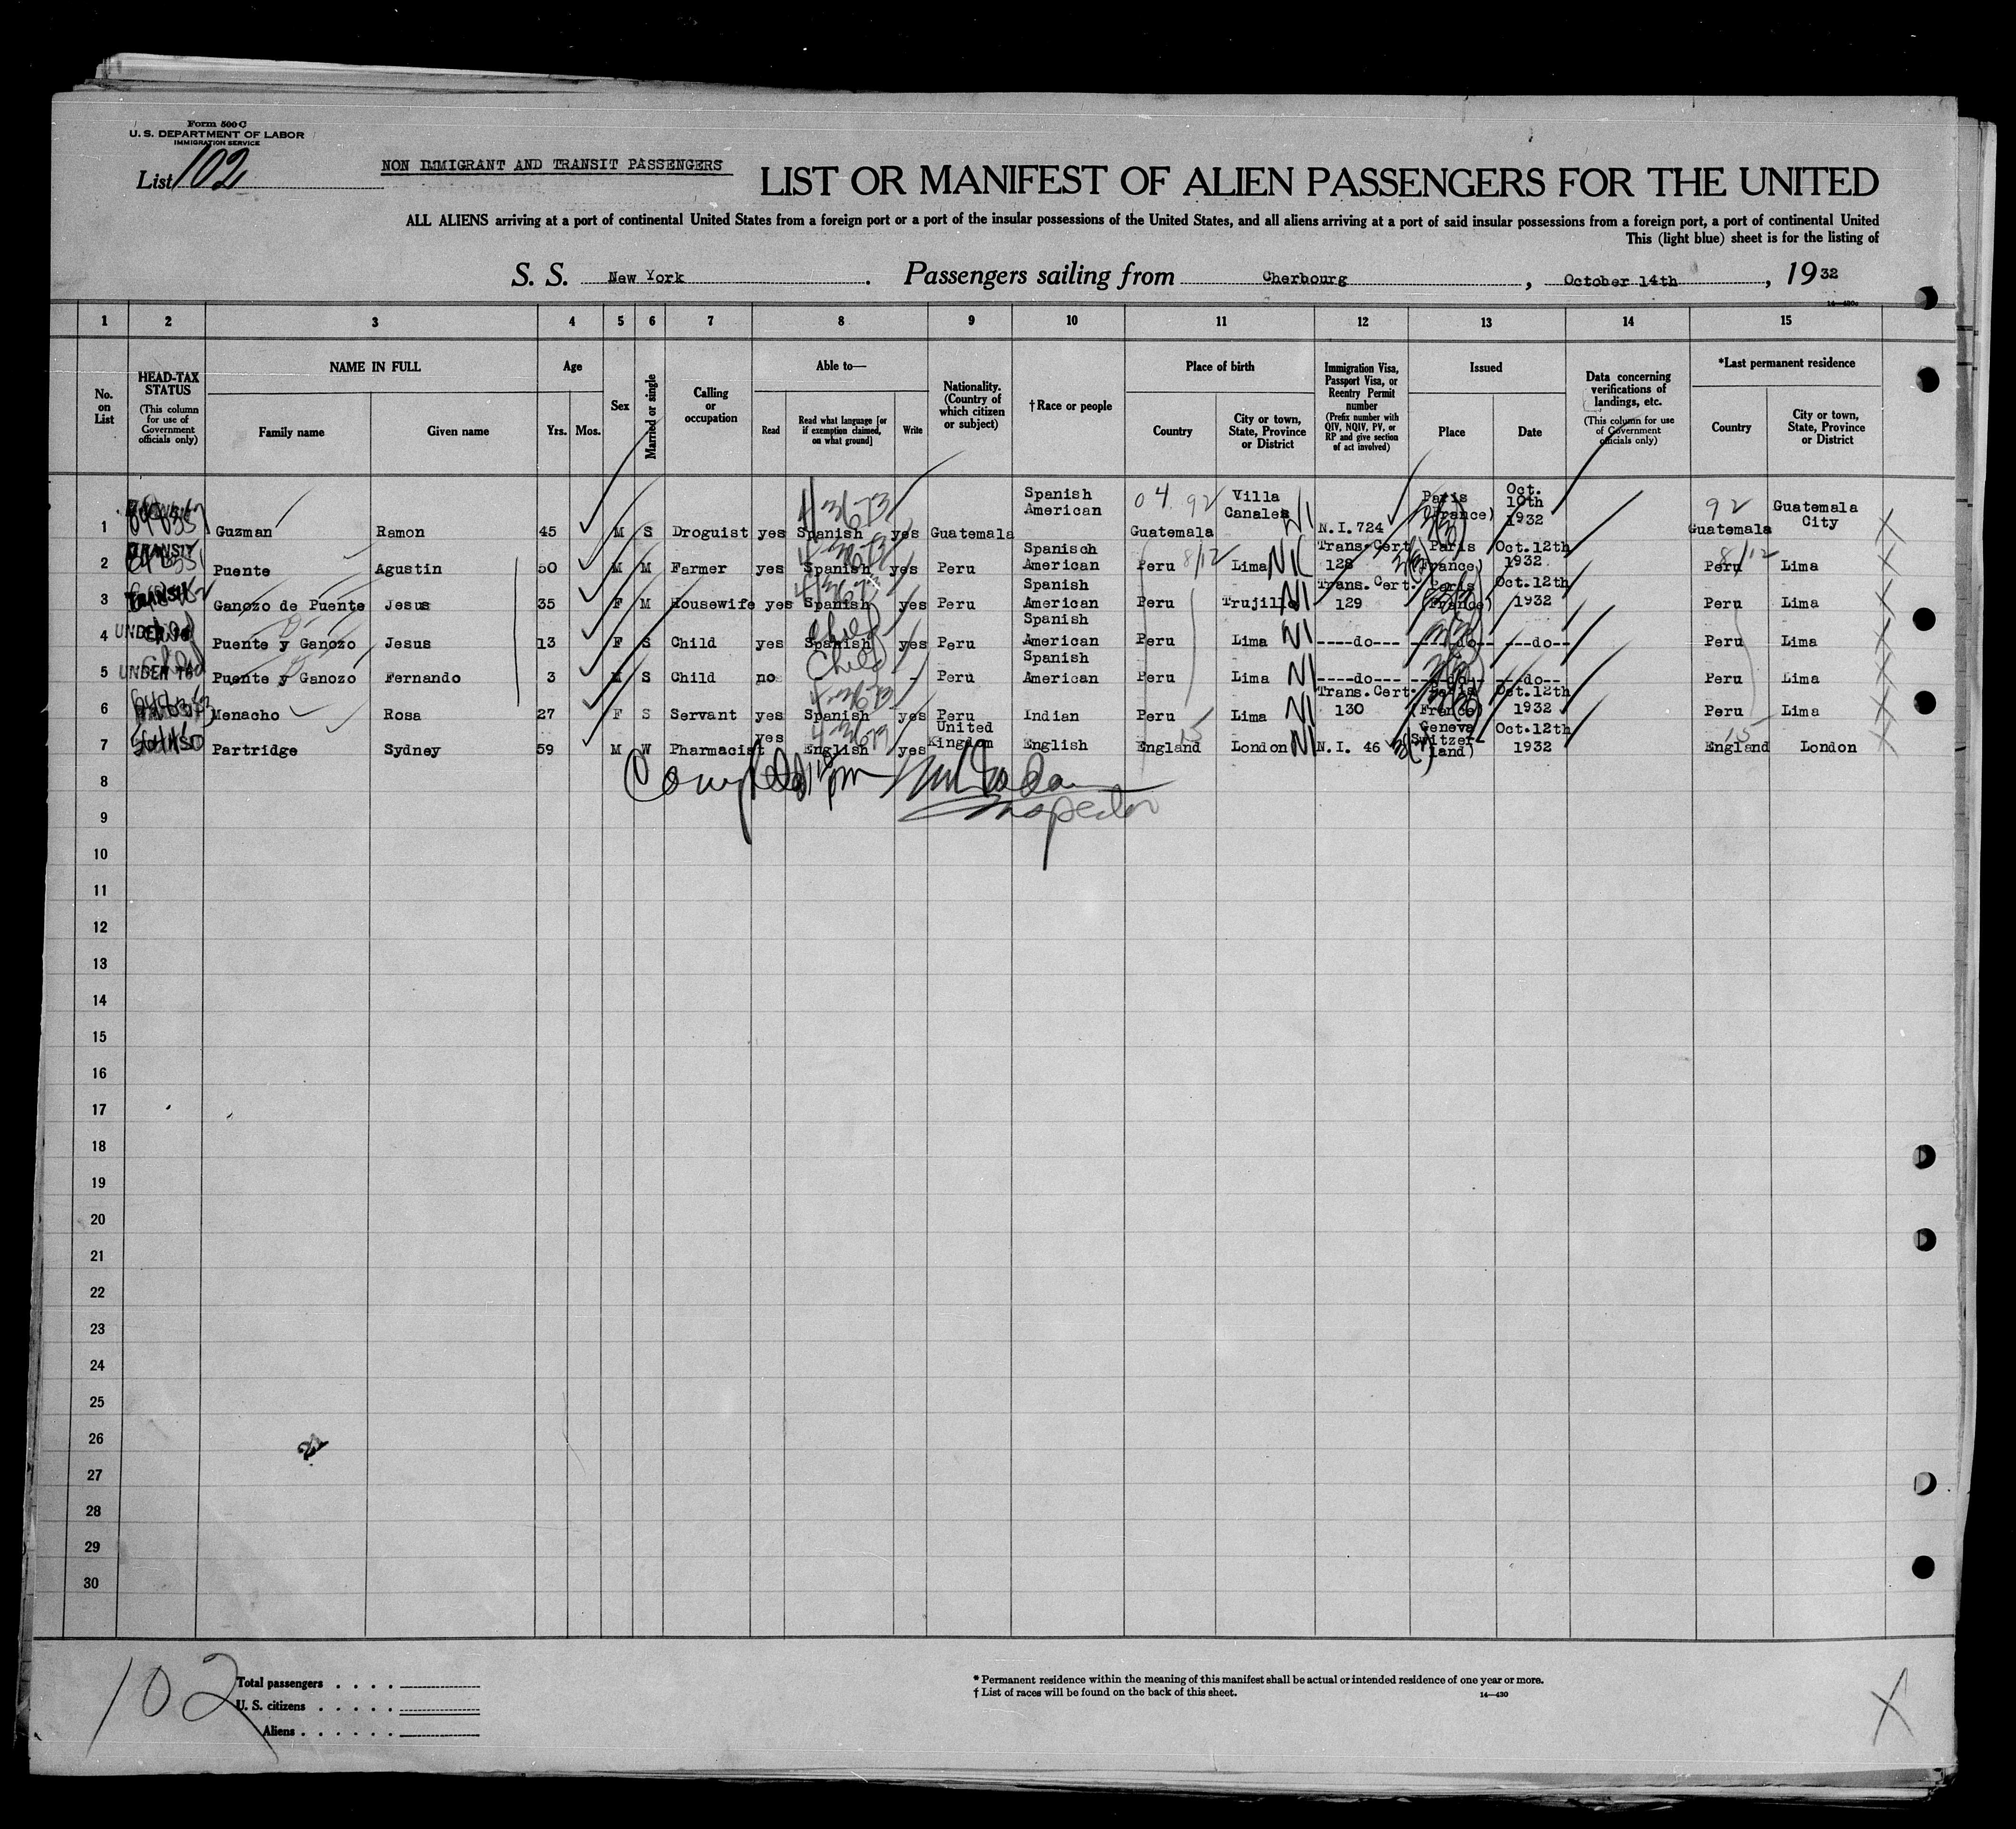 Form 500 C
U. S. DEPARTMENT OF LABOR
IMMIGRATION SERVICE
List 102
NON IMMIGRANT AND TRANSIT PASSENGERS
LIST OR MANIFEST OF ALIEN PASSENGERS FOR THE UNITED
ALL ALIENS arriving at a port of continental United States from a foreign port or a port of the insular possessions of the United States, and all aliens arriving at a port of said insular possessions from a foreign port, a port of continental United
This (light blue) sheet is for the listing of
S. S. New York. Passengers sailing from Cherbourg, October 14th, 1932
14—430
1 2 3 4 5 6 7 8 9 10 11 12 13 14 15
No. on List
HEAD-TAX STATUS (This column for use of Government officials only)
NAME IN FULL
Family name Given name
Age
Yrs. Mos.
Sex
Married or single
Calling or occupation
Able to—
Read Read what language [or if exemption claimed, on what ground] Write
Nationality. (Country of which citizen or subject)
† Race or people
Place of birth
Country City or town, State, Province or District
Immigration Visa, Passport Visa, or Reentry Permit number (Prefix number with QIV, NQIV, PV, or RP and give section of act involved)
Issued
Place Date
Data concerning verifications of landings, etc. (This column for use of Government officials only)
*Last permanent residence
Country City or town, State, Province or District
1 Guzman Ramon 45 M S Droguist yes Spanish yes Guatemala Spanish American 04 92 Guatemala Villa Canales NI N.I.724 Paris (France) Oct. 10th 1932 92 Guatemala Guatemala City
2 TRANSIT Puente Agustin 50 M M Farmer yes Spanish yes Peru Spanisch American Peru 8/12 Lima NI Trans.Cert 128 Paris (France) Oct.12th 1932 Peru 8/12 Lima
3 TRANSIT Ganozo de Puente Jesus 35 F M Housewife yes Spanish yes Peru Spanish American Peru Trujillo NI Trans.Cert. 129 Paris (France) Oct.12th 1932 Peru Lima
4 UNDER 16 Child Puente y Ganozo Jesus 13 F S Child yes Spanish Child yes Peru Spanish American Peru Lima NI ----do--- ----do-- ---do-- Peru Lima
5 UNDER 16 Child Puente y Ganozo Fernando 3 M S Child no Child - Peru Spanish American Peru Lima NI ----do--- ----do-- ---do-- Peru Lima
6 Menacho Rosa 27 F S Servant yes Spanish yes Peru Indian Peru Lima NI Trans.Cert. 130 Paris (France) Oct.12th 1932 Peru Lima
7 Partridge Sydney 59 M W Pharmacist yes English yes United Kingdom English England 15 London NI N.I. 46 Geneva (Switzerland) Oct.12th 1932 England 15 London
8
pm
Inspector
9
10
11
12
13
14
15
16
17
18
19
20
21
22
23
24
25
26
27
28
29
30
102
Total passengers . . . .
U. S. citizens . . . . .
Aliens . . . . . .
* Permanent residence within the meaning of this manifest shall be actual or intended residence of one year or more.
† List of races will be found on the back of this sheet.
14—430
X